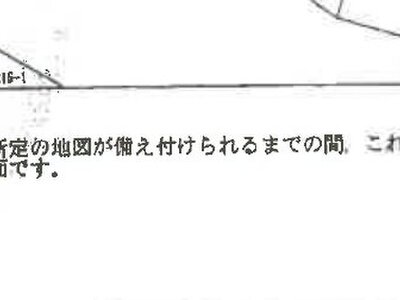 16-1
定の地図が備え付けられるまでの間、これ
面です。